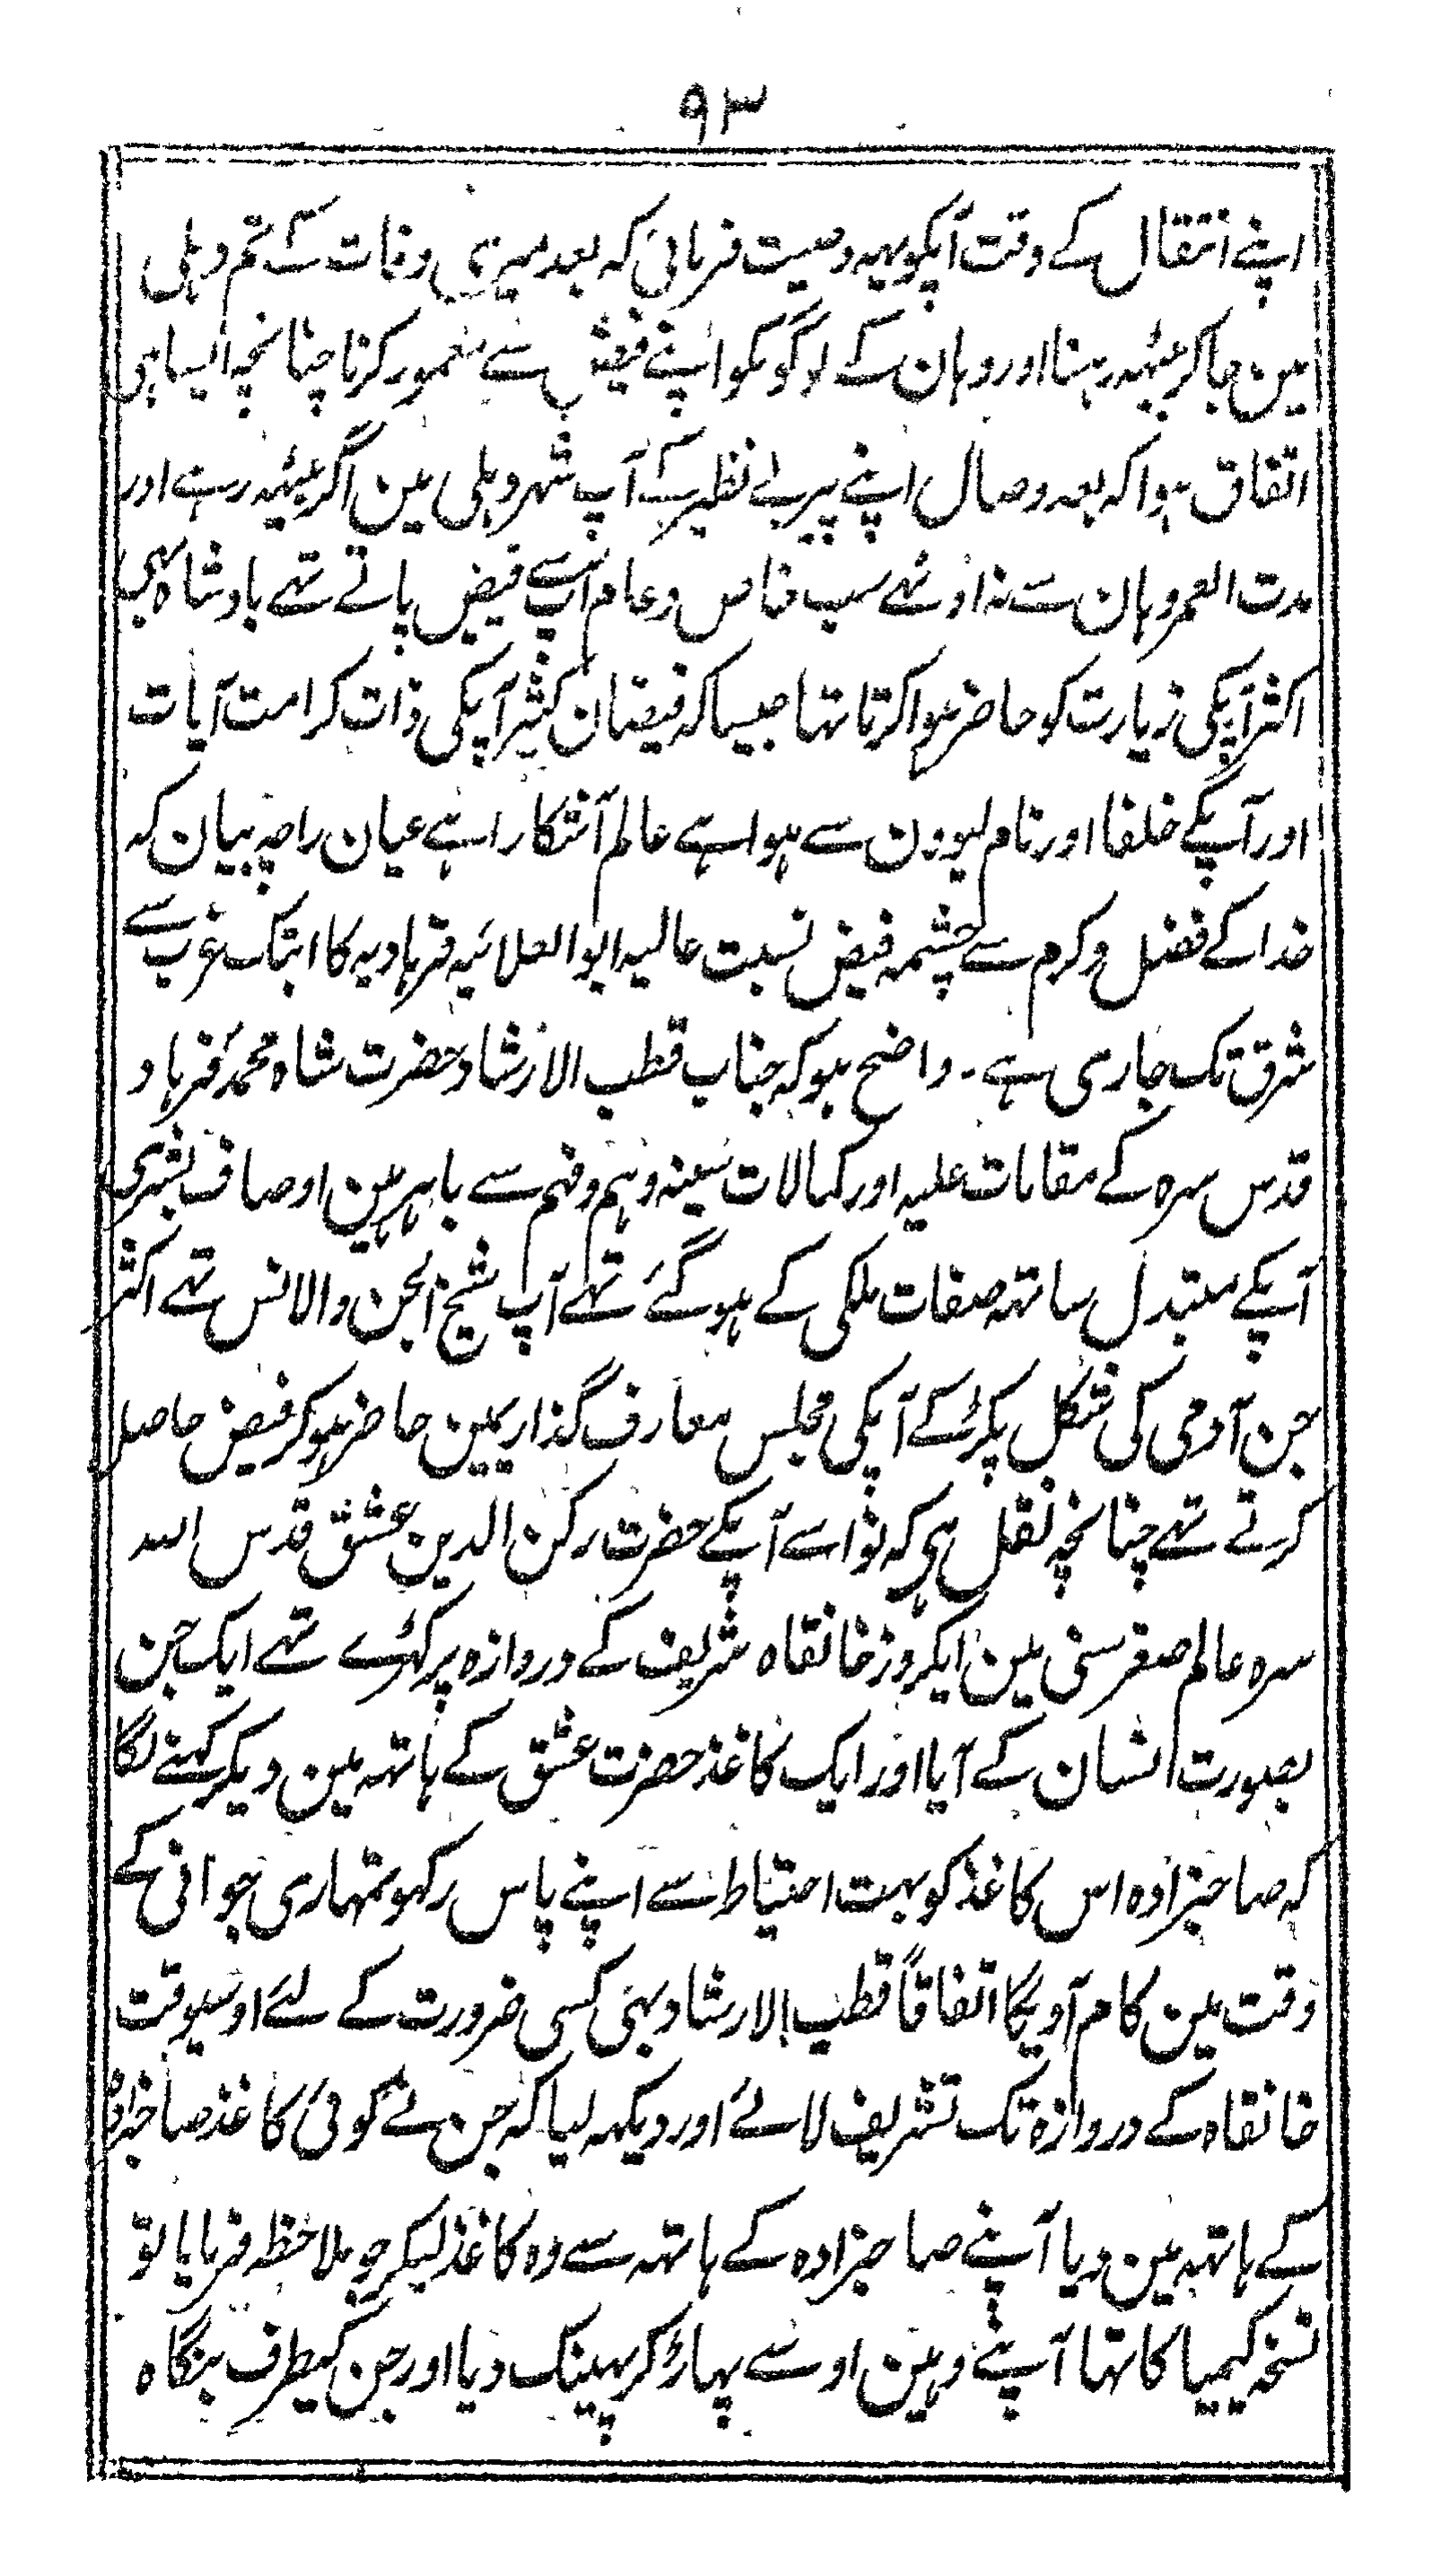 ۹۳
اپنے انتقال کے وقت آپکو یہہ وصیت فرمائی کہ بعد میری وفات کے تم دہلی
مین جاکر بیٹھہ رہنا اور وہان کے لوگونکو اپنے فیض سے معمور کرنا چنانچہ ایسا ہی
اتفاق ہوا کہ بعد وصال اپنے پیر بے نظیر کے آپ شہر دہلی مین آکر بیٹھہ رہے اور
مدت العمر وہان سے نہ اوٹھے سب خاص و عام آپسے فیض پاتے تہے بادشاہ بہی
اکثر آپکی زیارت کو حاضر ہوا کرتا تہا جیسا کہ فیضان کثیر آپکی ذات کرامت آیات
اور آپکے خلفا اور نام لیوون سے ہوا ہے عالم آشکارا ہے عیان راچہ بیان کہ
خدا کے فضل و کرم سے چشمہ فیض نسبت عالیہ ابوالعلائیہ فرہادیہ کا ابتک غرب سے
شرق تک جاری ہے۔ واضح ہو کہ جناب قطب الارشاد حضرت شاہ محمد فرہاد
قدس سرہ کے مقامات علیہ اور کمالات سینہ وہم و فہم سے باہر ہین اوصاف بشری
آپکے مبتدل ساتہہ صفات ملکی کے ہوگئے تہے آپ شیخ الجن والانس تہے اکثر
جن آدمی کی شکل پکڑکے آپکی مجلس معارف گذاریمین حاضر ہوکر فیض حاصل
کرتے تہے چنانچہ نقل ہی کہ نواسے آپکے حضرت رکن الدین عشق قدس اللہ
سرہ عالم صغر سنی مین ایکروز خانقاہ شریف کے دروازہ پر کہڑے تہے ایک جن
بصورت انسان کے آیا اور ایک کاغذ حضرت عشق کے ہاتہہ مین دیکر کہنے لگا
کہ صاحبزادہ اس کاغذ کو بہت احتیاط سے اپنے پاس رکہو تمہاری جوانی کے
وقت مین کام آویگا اتفاقاً قطب الارشاد بہی کسی ضرورت کے لئے اوسیوقت
خانقاہ کے دروازہ تک تشریف لائے اور دیکہہ لیا کہ جن نے کوئی کاغذ صاحبزادہ
کے ہاتہہ مین دیا آپنے صاحبزادہ کے ہاتہہ سے وہ کاغذ لیکر جو ملاحظہ فرمایا تو
نسخہ کیمیا کا تہا آپنے وہین اوسے پہاڑ کر پہینک دیا اور جن کیطرف بنگاہ